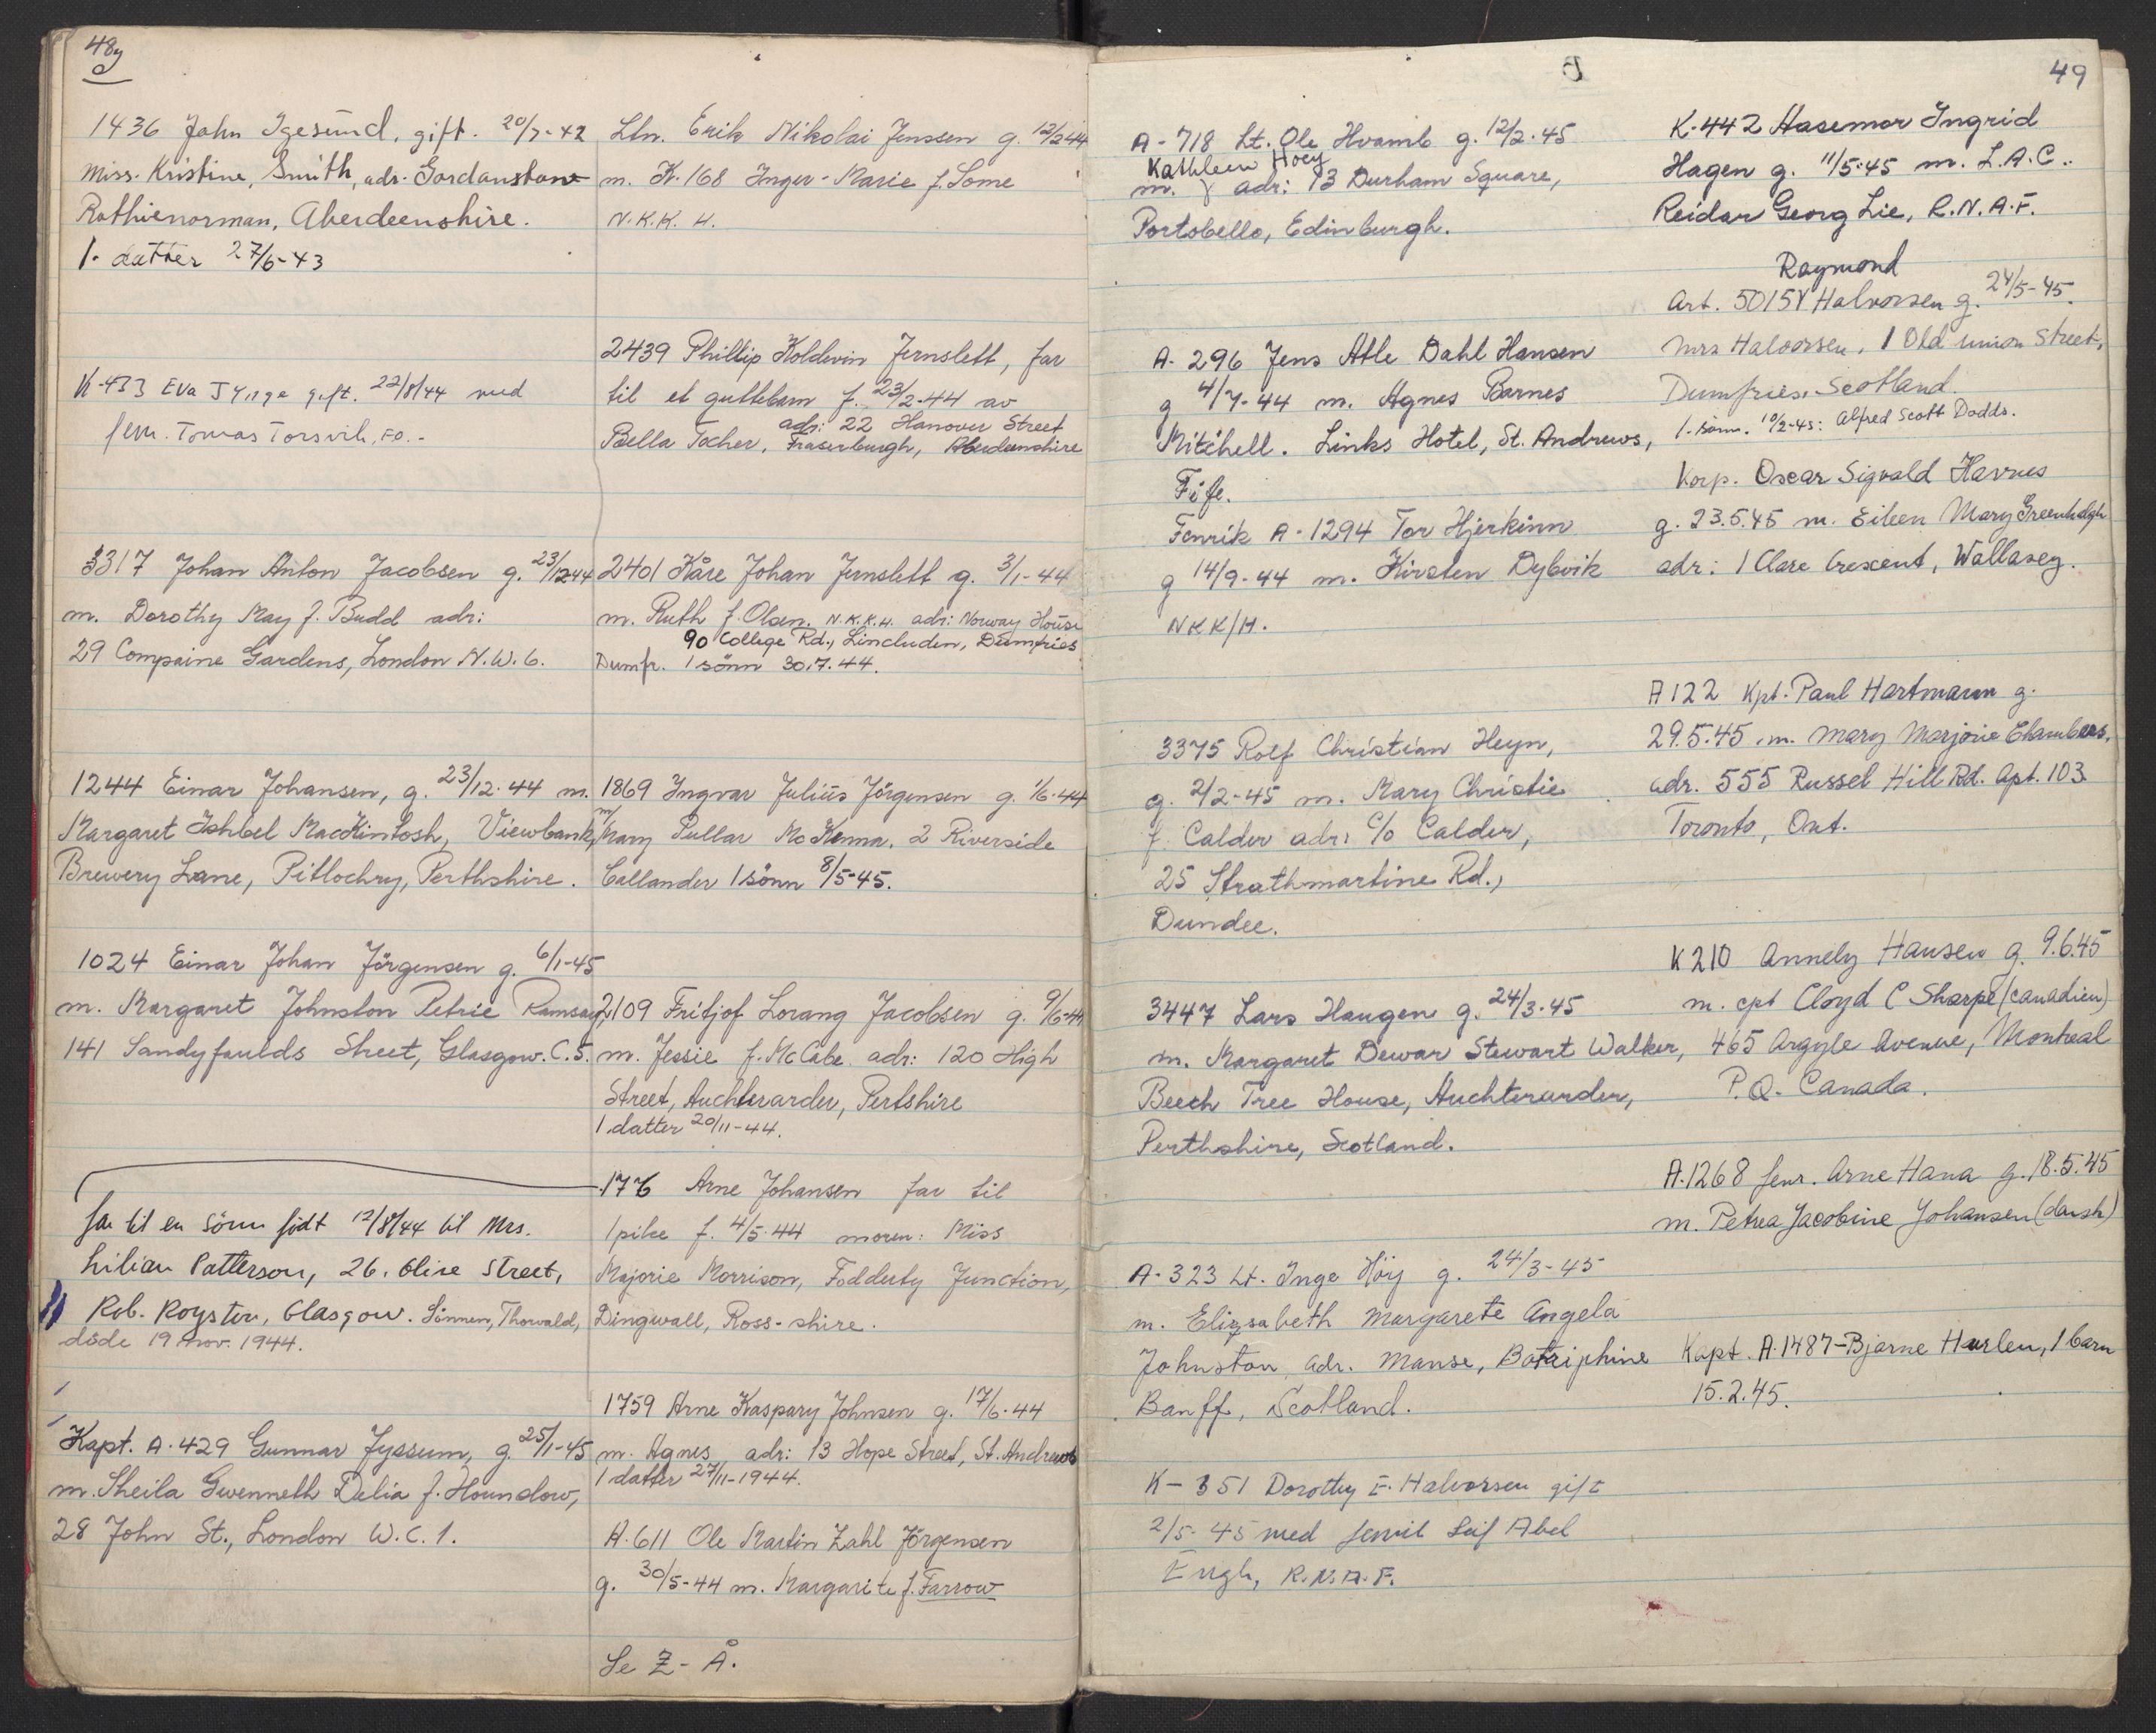 48
1436 John Igesund, gift. 20/7-42
Miss. Kristine, Smith, adr. Gordanstown
Rothienorman, Aberdeenshire.
1. datter 27/6-43
K-433 Eva J gift. 22/8/44 med
fenr. Tomas Torsvik, FO.-
3317 Johan Anton Jacobsen g. 23/12-44
m. Dorothy May f. Budd adr:
29 Compaine Gardens, London N.W.6.
1244 Einar Johansen, g. 23/12-44 m.
Margaret Ishbel MacKintosh, Viewbank,
Brewery Lane, Pitlochry, Perthshire.
1024 Einar Johan Jörgensen g. 6/1-45
m. Margaret Johnston Petrie Ramsay,
141 Sandyfaulds Street, Glasgow. C.5.
far til en sönn födt 12/8/44 til Mrs.
Lilian Patterson, 26. Olive Street,
Rob. Royston, Glasgow. Sönnen, Thorvald,
döde 19 nov. 1944.
Kapt. A.429 Gunnar Jyssum, g. 25/1-45
m. Sheila Gwenneth Delia f. Hounslow,
28 John St., London W.C.1.
Ltn. Erik Nikolai Jenssen g. 12/2-44
m. K.168 Inger-Marie f. Lome
N.K.K.H.
2439 Phillip Koldevin Jernslett, far
til et guttebarn f. 23/2-44 av
adr: 22 Hanover Street
Bella Tocher, Fraserburgh, Aberdeenshire
2401 Kåre Johan Jernslett g. 3/1-44
m. Ruth f. Olsen. N.K.K.H. adr: Norway House
90 College Rd., Lincluden, Dumfries
Dumfr. 1 sönn 30.7.44.
1869 Ingvar Julius Jörgensen g. 1/6-44
m/ Mary Pullar McKenna. 2 Riverside
Callander 1 sönn 8/5-45.
2109 Fritjof Lorang Jacobsen g. 9/6-44
m. Jessie f. McCabe. adr: 120 High
Street, Auchterarder, Pertshire
1 datter 20/11-44.
176 Arne Johansen far til
1 pike f. 4/5-44 moren: Miss
Majorie Morrison, Fodduty Junction,
Dingwall, Ross-shire.
1759 Arne Kaspary Johnsen g. 17/6-44
m. Agnes adr: 13 Hope Street, St. Andrews
1 datter 27/11-1944.
A.611 Ole Martin Zahl Jörgensen
g. 30/5-44 m. Margarite f. Farrow
Se Z-Å.
49
A-718 Lt. Ole Hvamb g. 12/2-45
Kathleen Hoey
m. adr: 13 Durham Square,
Portobello, Edinburgh.
A-296 Jens Atle Dahl Hansen
g 4/7-44 m. Agnes Barnes
Mitchell. Links Hotel, St. Andrews,
Fife.
Fenrik A-1294 Tor Hjerkinn
g 14/9-44 m. Kirsten Dybvik
NKK/H.
3375 Rolf Christian Heyn,
g. 2/2-45 m. Mary Christie
f. Calder adr: c/o Calder,
25 Strathmartine Rd.,
Dundee.
3447 Lars Haugen g. 24/3-45
m. Margaret Dewar Stewart Walker,
Beech Tree House, Auchterarder,
Perthshire, Scotland.
A-323 Lt. Inge Höy g. 24/3-45
m. Elizsabeth Margarete Angela
Johnston adr. Manse, Botriphine
Banff, Scotland.
K-351 Dorothy E. Halvorsen gift
2/5-45 med fenrik Leif Abel
Engh, R.N.A.F.
K-442 Aasemor Ingrid
Hagen g. 11/5-45 m. L.A.C.
Reidar Georg Lie, R.N.A.F.
Raymond
Art. 5015 Halvorsen g. 24/5-45.
Mrs Halvorsen, 1 Old Union Street,
Dumfries. Scotland
1. sönn. 10/2-45: Alfred Scott Dodds.
Korp. Oscar Sigvald Havnes
g. 23.5.45 m. Eileen Mary Greenhalgh
adr: 1 Clare Crescent, Wallasey.
A122 Kpt. Paul Hartmann g.
29.5.45 m. Mary Marjorie Chambers.
adr. 555 Russel Hill Rd. Apt. 103
Toronto, Ont.
K210 Annely Hansen g. 9.6.45
m. cpt Cloyd C Sharpe (canadien)
465 Argyle Avenue, Montreal
P.Q. Canada.
A.1268 fenr. Arne Hana g. 18.5.45
m. Petrea Jacobine Johansen (dansk)
Kapt. A.1487-Bjarne Hauslen, 1 barn
15.2.45.